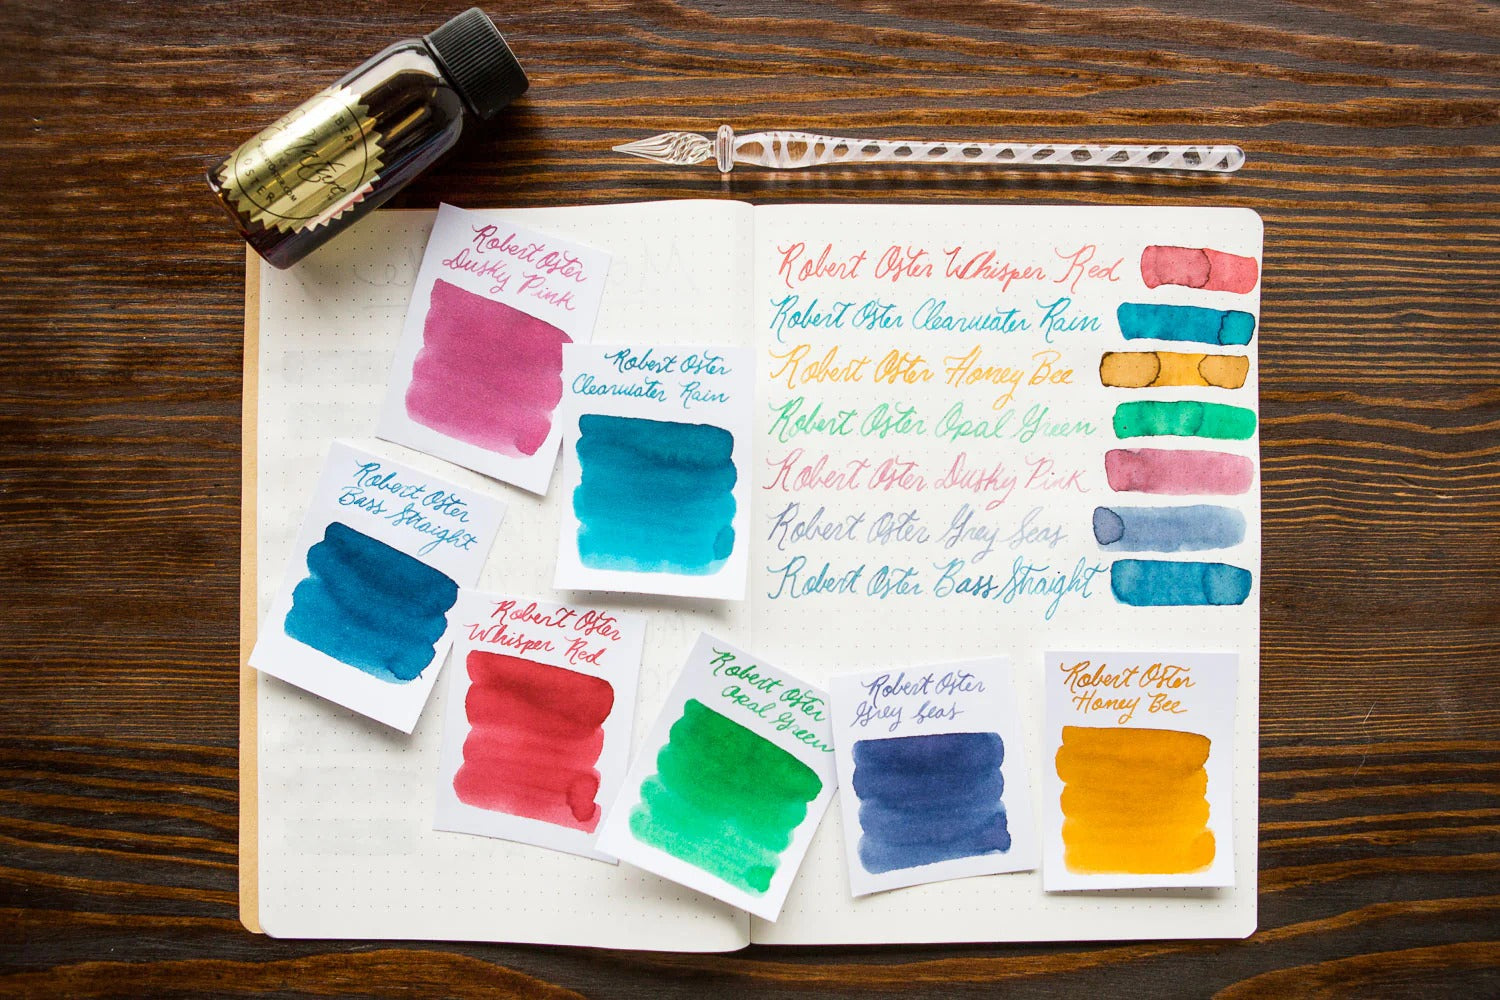 Robert Oster
Dusky Pink
Robert Oster
Clearwater Rain
Robert Oster
Bass Straight
Robert Oster
Whisper Red
Robert Oster
Opal Green
Robert Oster
Grey Seas
Robert Oster
Honey Bee
Robert Oster Whisper Red
Robert Oster Clearwater Rain
Robert Oster Honey Bee
Robert Oster Opal Green
Robert Oster Dusky Pink
Robert Oster Grey Seas
Robert Oster Bass Straight
OSTER